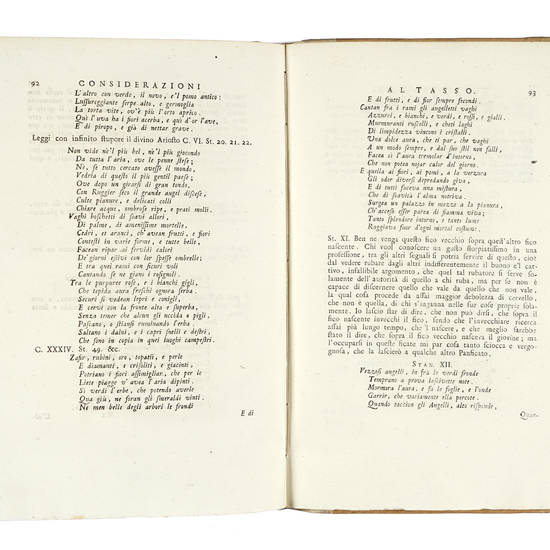 92 CONSIDERAZIONI
L'altro con verde, il novo, e'l pomo antico:
Lussureggiante serpe alto, e germoglia
La torta vite, ov'è più l'orto aprico.
Quì l'uva ha i fiori acerba, e quì d'or l'ave,
E di piropo, e già di nettar grave.
Leggi con infinito stupore il divino Ariosto C. VI. St. 20. 21. 22.
Non vide nè'l più bel, nè'l più giocondo
Da tutta l'aria, ove le penne stese;
Nè, se tutto cercato avesse il mondo,
Vedria di questo il più gentil paese;
Ove dopo un girarsi di gran tondo,
Con Ruggier seco il grande augel discese,
Culte pianure, e delicati colli
Chiare acque, ombrose ripe, e prati molli.
Vaghi boschetti di soavi allori,
Di palme, di amenissime mortelle,
Cedri, et aranci, ch'avean frutti, e fiori
Contesti in varie forme, e tutte belle,
Facean riparo ai fervidi calori
De' giorni estivi con lor spesse ombrelle;
E tra quei rami con sicuri voli
Cantando se ne giano i rosignuoli.
Tra le purpuree rose, e i bianchi gigli,
Che tepida aura freschi ognora serba,
Securi si vedean lepri e conigli,
E cervi con la fronte alta e superba,
Senza temer che alcun gli uccida o pigli,
Pascano, e stiansi ruminando l'erba.
Saltano i daini, e i capri snelli e destri,
Che sono in copia in quei luoghi campestri.
C. XXXIV. St. 49. &c.
Zafir, rubini, oro, topazii, e perle
E diamanti, e crisoliti, e giacinti,
Potriano i fiori assimigliar, che per le
Liete piagge v'avea l'aria dipinti.
Sì verdi l'erbe, che potendo averle
Qua giù, ne foran gli smeraldi vinti.
Nè men belle degli arbori le frondi
E di
AL TASSO. 93
E di frutti, e di fior sempre fecondi.
Cantan fra i rami gli augelletti vaghi
Azzurri, e bianchi, e verdi, e rossi, e gialli.
Murmuranti ruscelli, e cheti laghi
Di limpidezza vincono i cristalli.
Una dolce aura, che ti par, che vaghi
A un modo sempre, e dal suo stil non falli,
Facea sì l'aura tremolar d'intorno,
Che non potea nojar calor del giorno.
E quella ai fiori, ai pomi, a la verzura
Gli odor diversi depredando giva,
E di tutti faceva una mistura,
Che di soavità l'alma notriva.
Surgea un palazzo in mezzo a la pianura
Ch'acceso esser parea di fiamma viva;
Tanto splendore intorno, e tanto lume
Raggiava fuor d'ogni mortal costume.
St. XI. Ben ne venga questo fico vecchio sopra quell'altro fico
nascente. Chi vuol conoscere un gusto stoppatissimo in una
professione, tra gli altri segnali si potria servire di questo, cioè
dal vedere rubare dagli altri indifferentemente il buono e'l cat-
tivo, infallibile argomento, che quel tal rubatore si serve so-
lamente dell'autorità di quello a chi ruba, ma per se non è
capace di discernere quello che vale da quello che non vale,
la qual cosa procede da assai maggior debolezza di cervello,
che non è quella, di chi s'inganna nelle sue composizioni pro-
prie. Io lascio star di dire, che non può dirsi, che sopra il
fico nascente invecchi il fico, sendo che l'invecchiare ricerca
assai più lungo tempo, che 'l nascere, e che meglio sarebbe
stato il dire, che sopra il fico vecchio nasceva il giovine; ma
l'occuparsi in queste ficate mi par cosa tanto sciocca e vergo-
gnosa, che la lascierò a qualche altro Panficato.
STAN. XII.
Vezzosi augelli, in fra le verdi fronde
Temprano a prova lascivette note.
Mormora l'aura, e fa le foglie, e l'onde
Garrir, che variamente ella percote.
Quando taccion gli Augelli, alto risponde,
Quan-